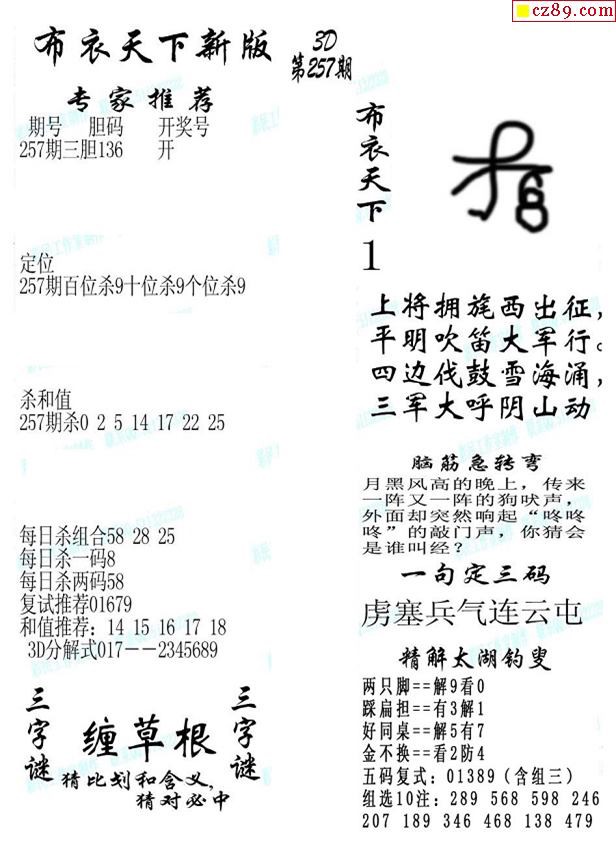 cz89.com
布衣天下新版
3D
第257期
专家推荐
期号 胆码 开奖号
257期三胆136 开
定位
257期百位杀9十位杀9个位杀9
杀和值
257期杀0 2 5 14 17 22 25
每日杀组合58 28 25
每日杀一码8
每日杀两码58
复试推荐01679
和值推荐：14 15 16 17 18
3D分解式017－－2345689
三字谜
缠草根
三字谜
猜比划和含义，
猜对必中
布衣天下
1
上将拥旄西出征，
平明吹笛大军行。
四边伐鼓雪海涌，
三军大呼阴山动
脑筋急转弯
月黑风高的晚上，传来
一阵又一阵的狗吠声，
外面却突然响起“咚咚
咚”的敲门声，你猜会
是谁叫经？
一句定三码
虏塞兵气连云屯
精解太湖钓叟
两只脚==解9看0
踩扁担==有3解1
好同桌==解5有7
金不换==看2防4
五码复式：01389（含组三）
组选10注：289 568 598 246
207 189 346 468 138 479